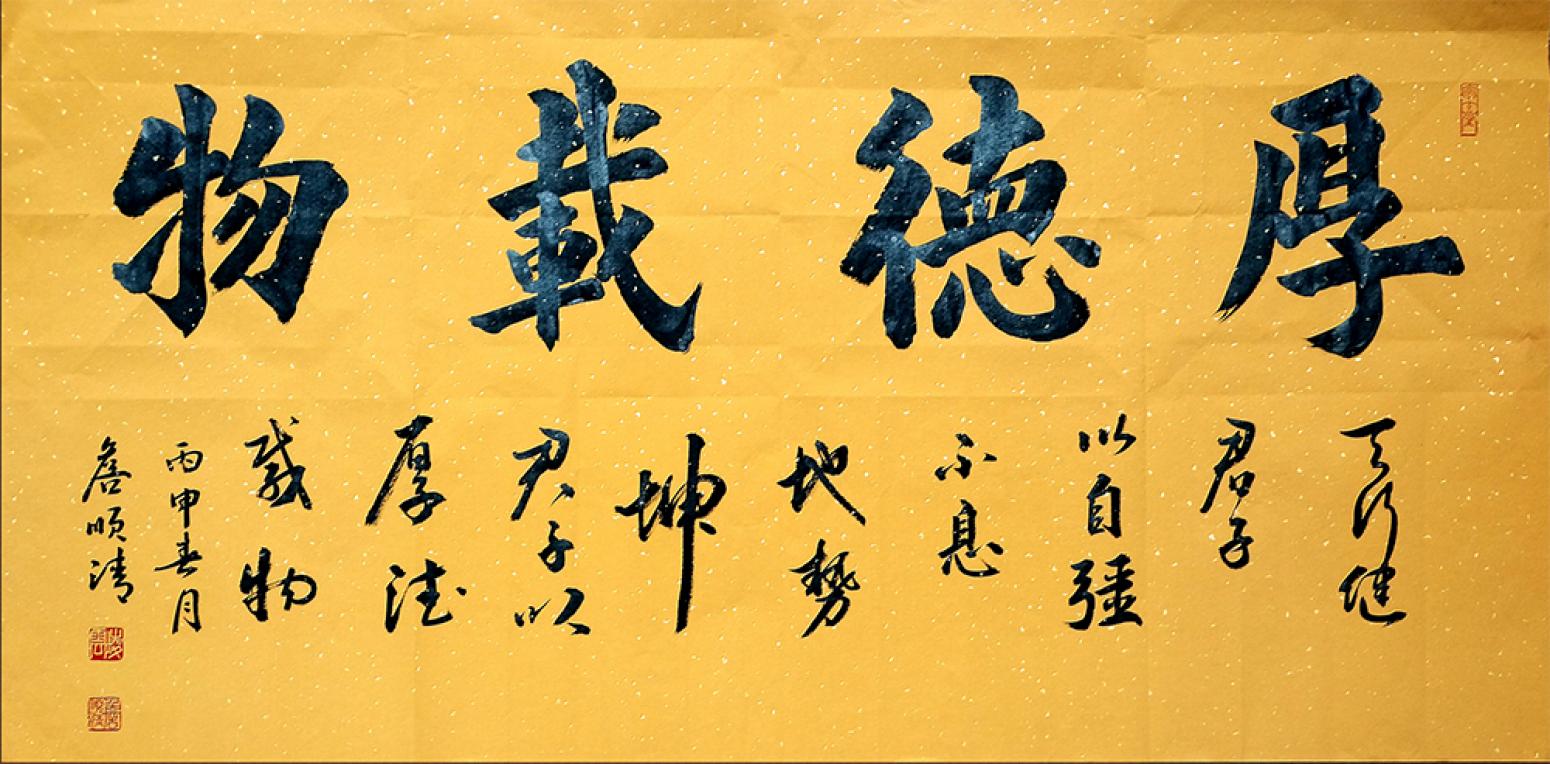 厚德載物
天行健
君子
以自强
不息
地勢
坤
君子以
厚德
載物
丙申春月
詹順清